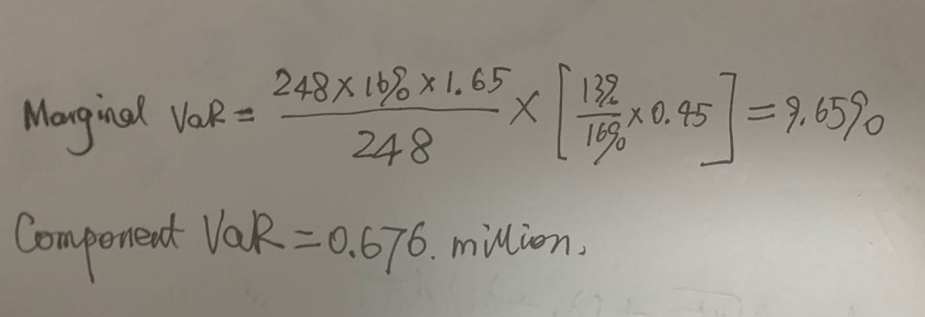 Marginal VaR = 248 × 16% × 1.65 / 248 × [13% / 16% × 0.45] = 9.65%
Component VaR = 0.676. million.